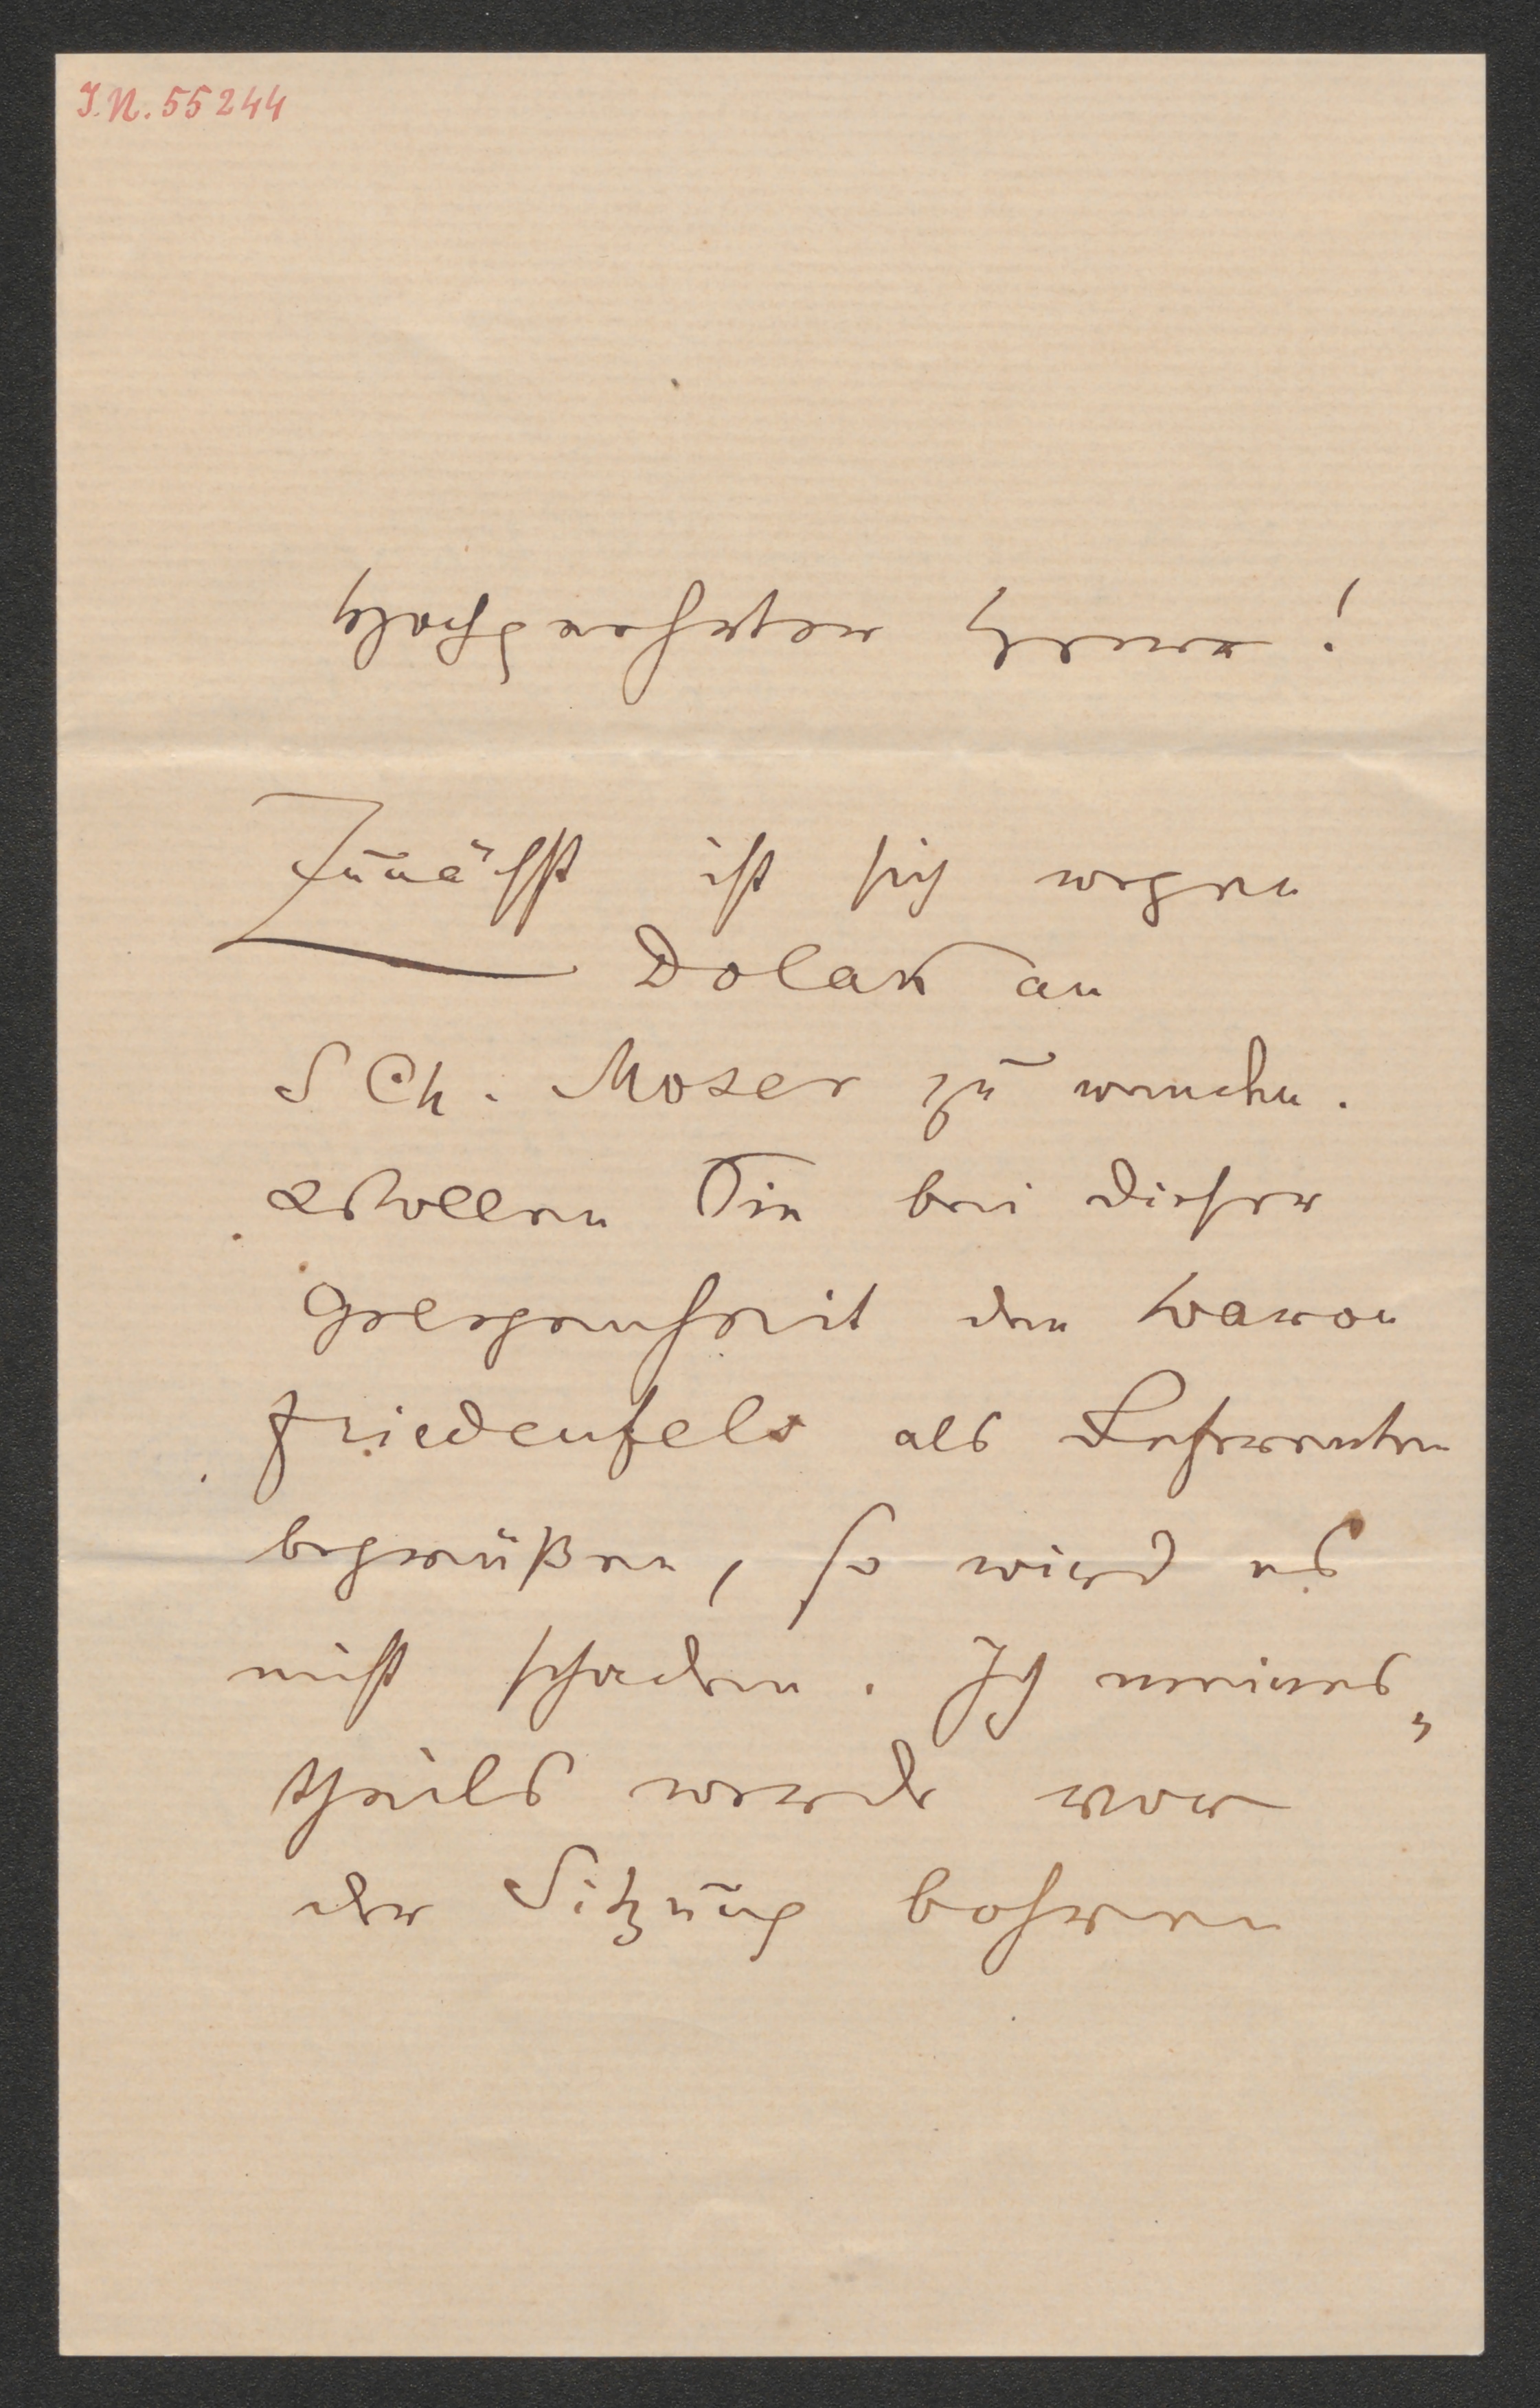 I.N. 55244
Hochgeehrter Herr!
Zunächst ist sich wegen
Dolan an
SCh. Moser zu wenden.
Wollen Sie bei dieser
Gelegenheit den Baron
Friedenfels als Referenten
begrüßen, so wird es
nicht schaden. Ich meines„
theils werde vor
der Sitzung bohren